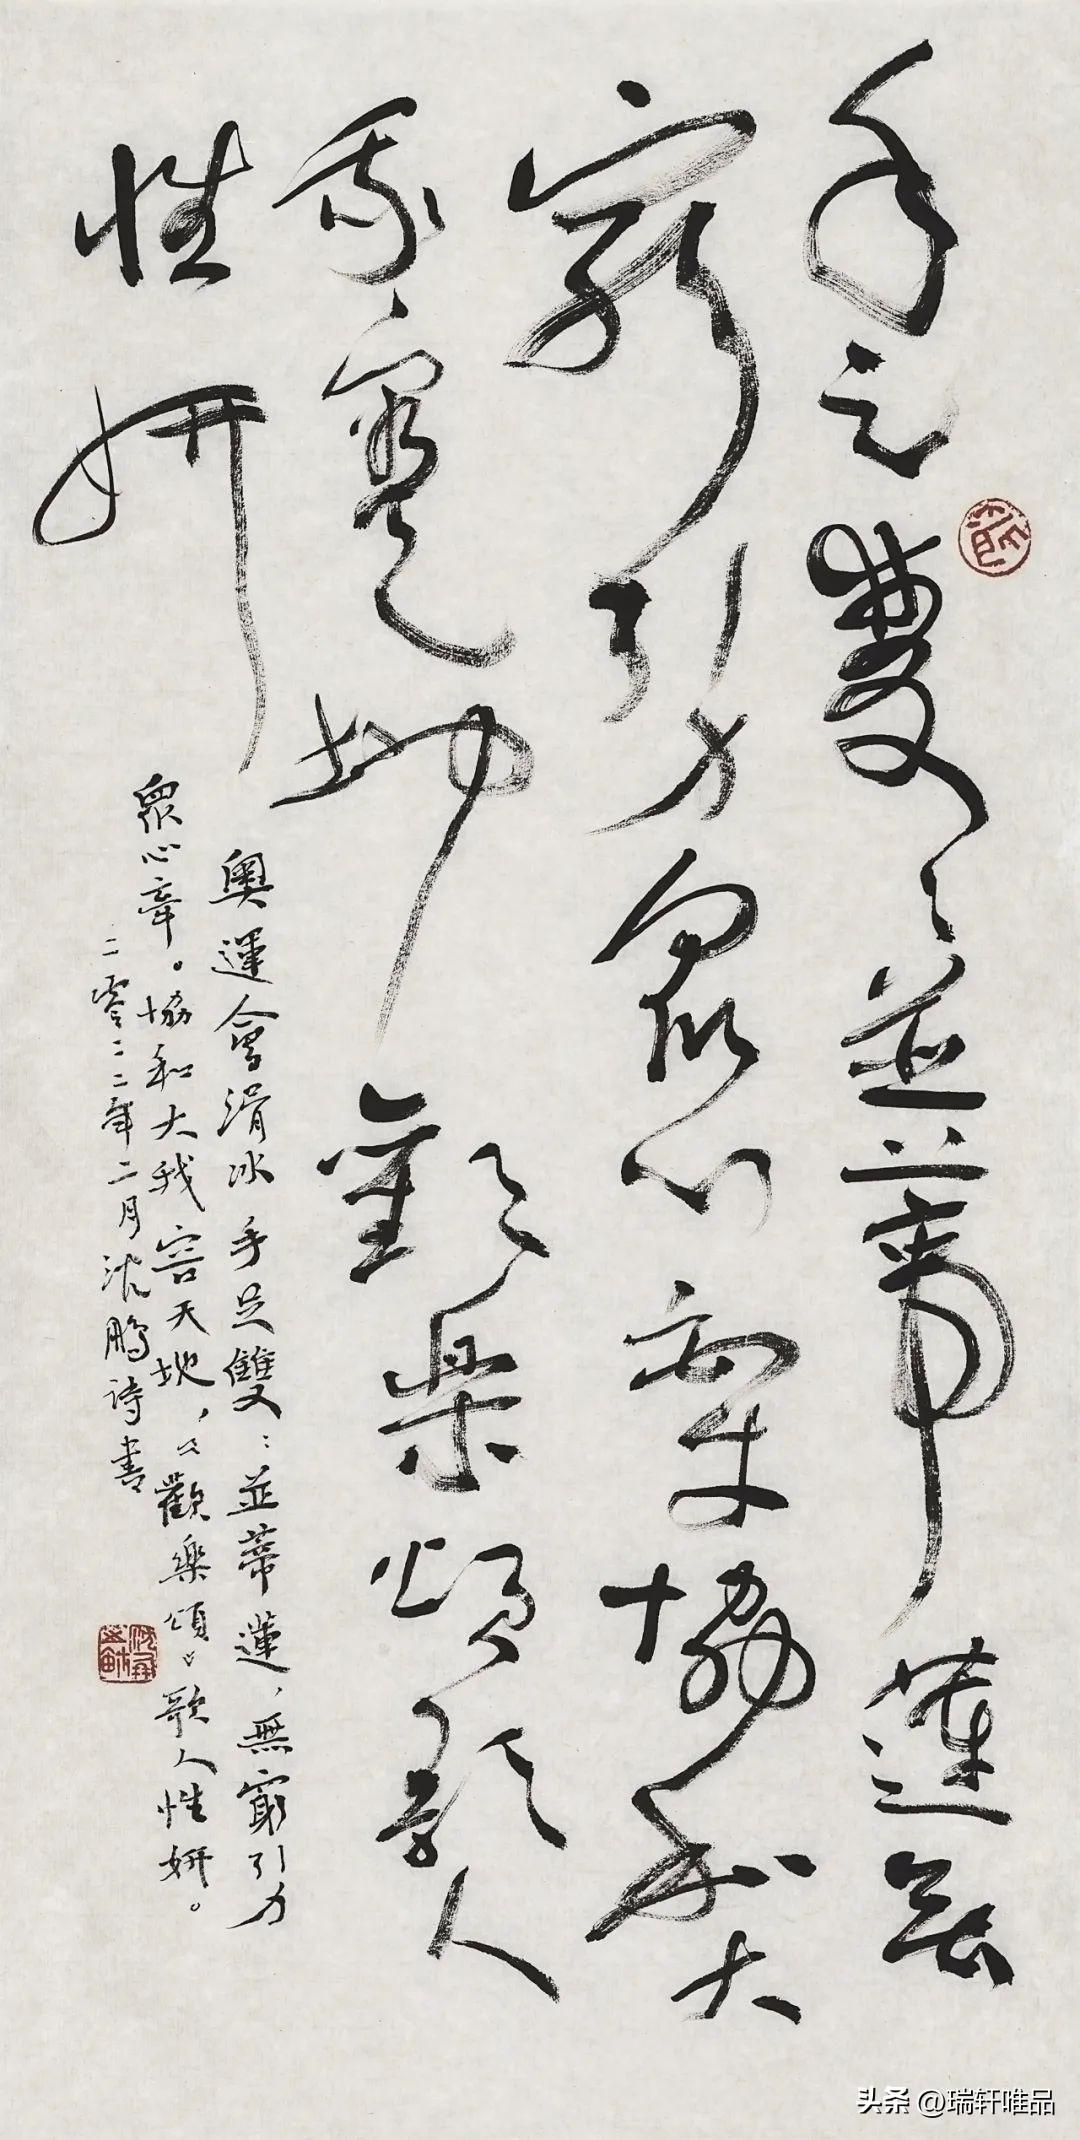 手足雙〻並蒂蓮無
窮引力眾心牽協和大
我容天地歡樂頌歌人
性妍
奧運會滑冰 手足雙〻並蒂蓮，無窮引力
眾心牽。協和大我容天地，《歡樂頌》歌人性妍。
二零二二年二月沈鵬詩書
头条 @瑞轩唯品